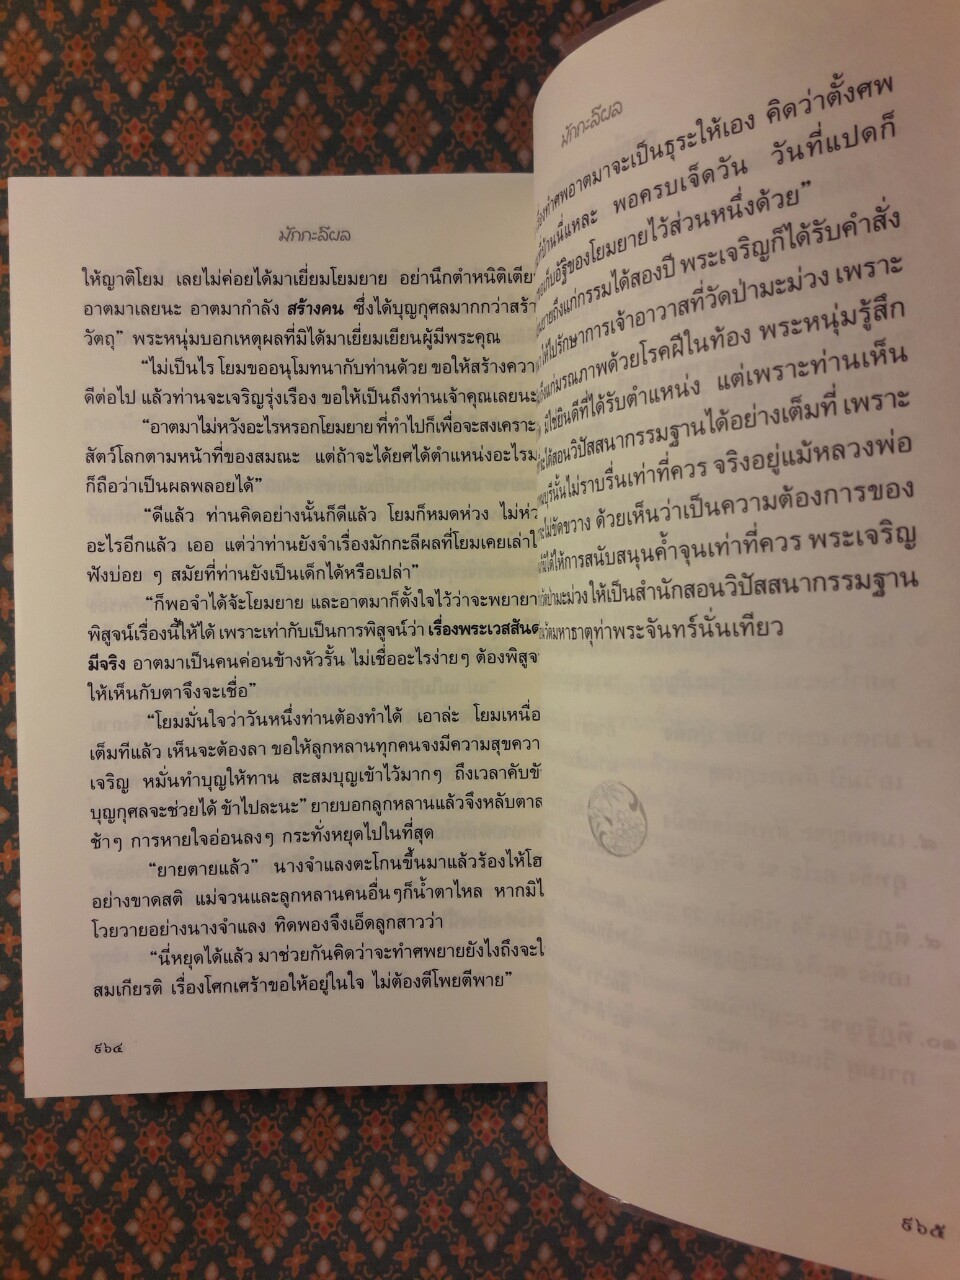 มักกะลีผล
ให้ญาติโยม เลยไม่ค่อยได้มาเยี่ยมโยมยาย อย่านึกตำหนิติเตีย
อาตมาเลยนะ อาตมากำลัง สร้างคน ซึ่งได้บุญกุศลมากกว่าสร้า
วัตถุ” พระหนุ่มบอกเหตุผลที่มิได้มาเยี่ยมเยียนผู้มีพระคุณ
“ไม่เป็นไร โยมขออนุโมทนากับท่านด้วย ขอให้สร้างควา
ดีต่อไป แล้วท่านจะเจริญรุ่งเรือง ขอให้เป็นถึงท่านเจ้าคุณเลยนะ
“อาตมาไม่หวังอะไรหรอกโยมยาย ที่ทำไปก็เพื่อจะสงเคราะ
สัตว์โลกตามหน้าที่ของสมณะ แต่ถ้าจะได้ยศได้ตำแหน่งอะไรม
ก็ถือว่าเป็นผลพลอยได้”
“ดีแล้ว ท่านคิดอย่างนั้นก็ดีแล้ว โยมก็หมดห่วง ไม่ห่ว
อะไรอีกแล้ว เออ แต่ว่าท่านยังจำเรื่องมักกะลีผลที่โยมเคยเล่าใ
ฟังบ่อย ๆ สมัยที่ท่านยังเป็นเด็กได้หรือเปล่า”
“ก็พอจำได้จ้ะโยมยาย และอาตมาก็ตั้งใจไว้ว่าจะพยายา
พิสูจน์เรื่องนี้ให้ได้ เพราะเท่ากับเป็นการพิสูจน์ว่า เรื่องพระเวสสันด
มีจริง อาตมาเป็นคนค่อนข้างหัวรั้น ไม่เชื่ออะไรง่ายๆ ต้องพิสูจ
ให้เห็นกับตาจึงจะเชื่อ”
“โยมมั่นใจว่าวันหนึ่งท่านต้องทำได้ เอาล่ะ โยมเหนื่อ
เต็มทีแล้ว เห็นจะต้องลา ขอให้ลูกหลานทุกคนจงมีความสุขควา
เจริญ หมั่นทำบุญให้ทาน สะสมบุญเข้าไว้มากๆ ถึงเวลาคับขั
บุญกุศลจะช่วยได้ ข้าไปละนะ” ยายบอกลูกหลานแล้วจึงหลับตาล
ช้าๆ การหายใจอ่อนลงๆ กระทั่งหยุดไปในที่สุด
“ยายตายแล้ว” นางจำแลงตะโกนขึ้นมาแล้วร้องไห้โฮ
อย่างขาดสติ แม่จวนและลูกหลานคนอื่นๆก็น้ำตาไหล หากมิไ
โวยวายอย่างนางจำแลง ทิดพองจึงเอ็ดลูกสาวว่า
“นี่หยุดได้แล้ว มาช่วยกันคิดว่าจะทำศพยายยังไงถึงจะใ
สมเกียรติ เรื่องโศกเศร้าขอให้อยู่ในใจ ไม่ต้องตีโพยตีพาย”
๙๖๔
มักกะลีผล
ทำศพอาตมาจะเป็นธุระให้เอง คิดว่าตั้งศพ
บ้านนี่แหละ พอครบเจ็ดวัน วันที่แปดก็
เก็บอัฐิของโยมยายไว้ส่วนหนึ่งด้วย”
ยายถึงแก่กรรมได้สองปี พระเจริญก็ได้รับคำสั่ง
ให้ไปรักษาการเจ้าอาวาสที่วัดป่ามะม่วง เพราะ
ถึงแก่มรณภาพด้วยโรคฝีในท้อง พระหนุ่มรู้สึก
มิใช่ยินดีที่ได้รับตำแหน่ง แต่เพราะท่านเห็น
จะได้สอนวิปัสสนากรรมฐานได้อย่างเต็มที่ เพราะ
บุรีนั้นไม่ราบรื่นเท่าที่ควร จริงอยู่แม้หลวงพ่อ
จะไม่ขัดขวาง ด้วยเห็นว่าเป็นความต้องการของ
มิได้ให้การสนับสนุนค้ำจุนเท่าที่ควร พระเจริญ
วัดป่ามะม่วงให้เป็นสำนักสอนวิปัสสนากรรมฐาน
วัดมหาธาตุท่าพระจันทร์นั่นเทียว
๙๖๕